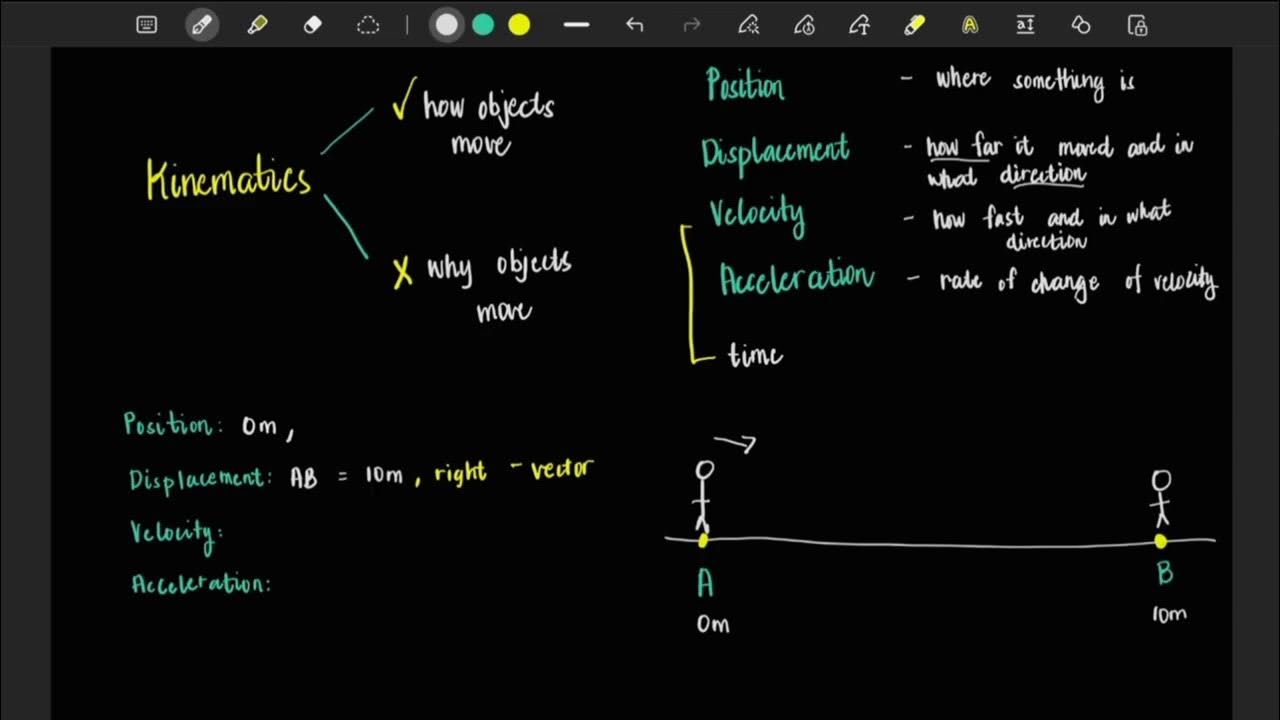 Kinematics
✓ how objects
move
X why objects
move
Position - where something is
Displacement - how far it moved and in
what direction
Velocity - how fast and in what
direction
Acceleration - rate of change of velocity
time
Position: 0m,
Displacement: AB = 10m, right - vector
Velocity:
Acceleration:
A
0m
B
10m